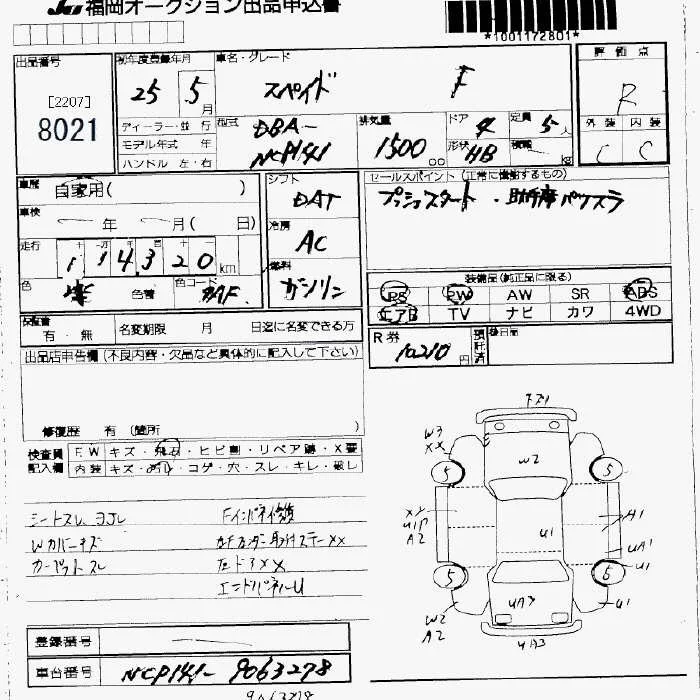 JU 福岡オークション出品申込書
*1001172801*
出品番号
[2207]
8021
初年度登録年月
25 5月
車名・グレード
スペイド F
評価点
R
ディーラー・並行
モデル年式 年
ハンドル 左・右
型式
DBA-
NCP141
排気量
1500cc
ドア
4
形状
HB
定員
5人
積載 kg
外装 内装
C C
車歴
自家用( )
車検
年 月( 日)
走行
十 万 千 百 十 一
114320km
色
色替
色コード
シフト
DAT
冷房
AC
燃料
ガソリン
セールスポイント (正常に機能するもの)
プッシュスタート ・助手席パワスラ
装備品(純正品に限る)
PS PW AW SR ABS
エアB TV ナビ カワ 4WD
保証書
有・無
名変期限 月 日迄に名変できる方
R券
10210円
預託済
後日品
出品店申告欄 (不良内容・欠品など具体的に記入して下さい)
修復歴 有 (箇所 )
検査員
記入欄
F.W キズ・飛石・ヒビ割・リペア跡・X要
内装 キズ・汚れ・コゲ・穴・スレ・キレ・破レ
シートスレ、ヨゴレ
Wカバーキズ
カーペットスレ
Fインパネ修復
左ドアXX
エンドパネルU
W3
XX
W2
U1
5
5
5
6
XX
A2
A1
UA1
U1
W2
A2
UA3
U1
UA3
登録番号
車台番号
NCP141-9063278